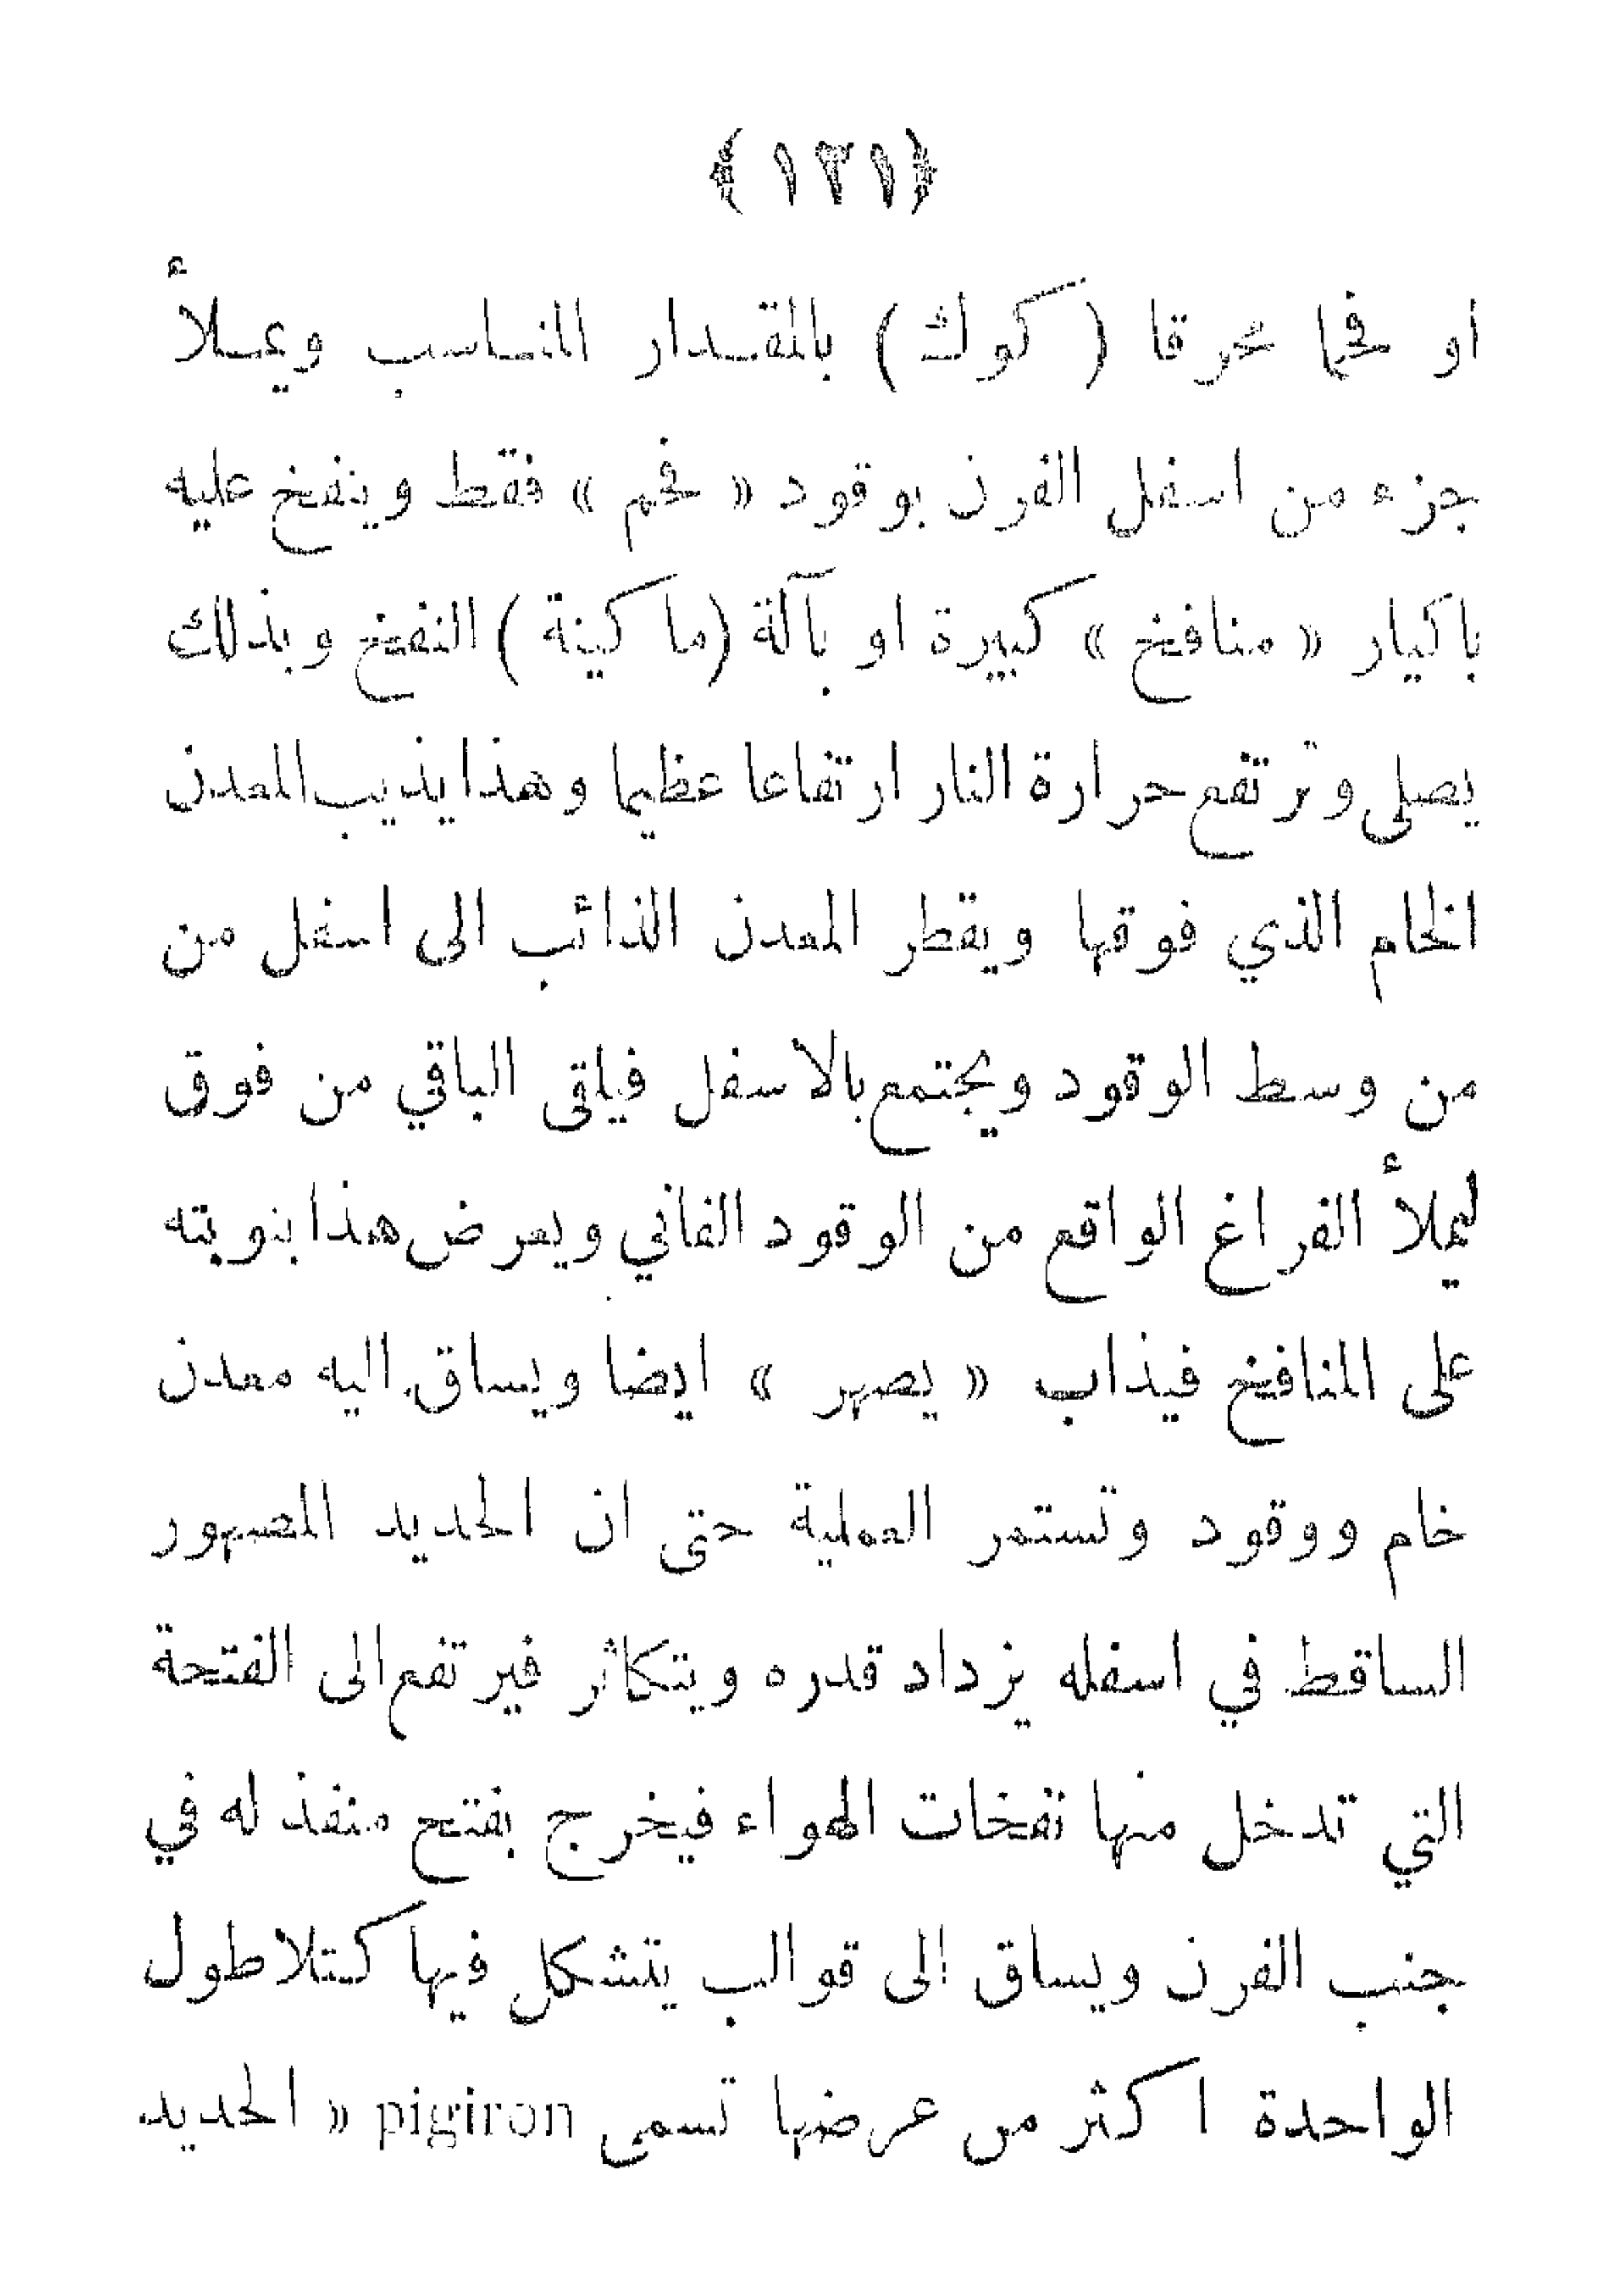 ﴿١٣١﴾
او فحما محرقا ( كوك ) بالمقدار المناسب ويملأ
جزء من اسفل الفرن بوقود « فحم » فقط وينفخ عليه
باكيار « منافخ » كبيرة او بآلة (ماكينة ) النفخ وبذلك
يصلى وترتفع حرارة النار ارتفاعا عظيما وهذا يذيب المعدن
الخام الذي فوقها ويقطر المعدن الذائب الى اسفل من
من وسط الوقود ويجتمع بالاسفل فيلقى الباقي من فوق
ليملأ الفراغ الواقع من الوقود الفاني ويعرض هذا بنوبته
على المنافخ فيذاب « يصهر » ايضا ويساق اليه معدن
خام ووقود وتستمر العملية حتى ان الحديد المصهور
الساقط في اسفله يزداد قدره ويتكاثر فيرتفع الى الفتحة
التي تدخل منها نفخات الهواء فيخرج بفتح منفذ له في
جنب الفرن ويساق الى قوالب يتشكل فيها كتلا طول
الواحدة اكثر من عرضها تسمى pigiron « الحديد